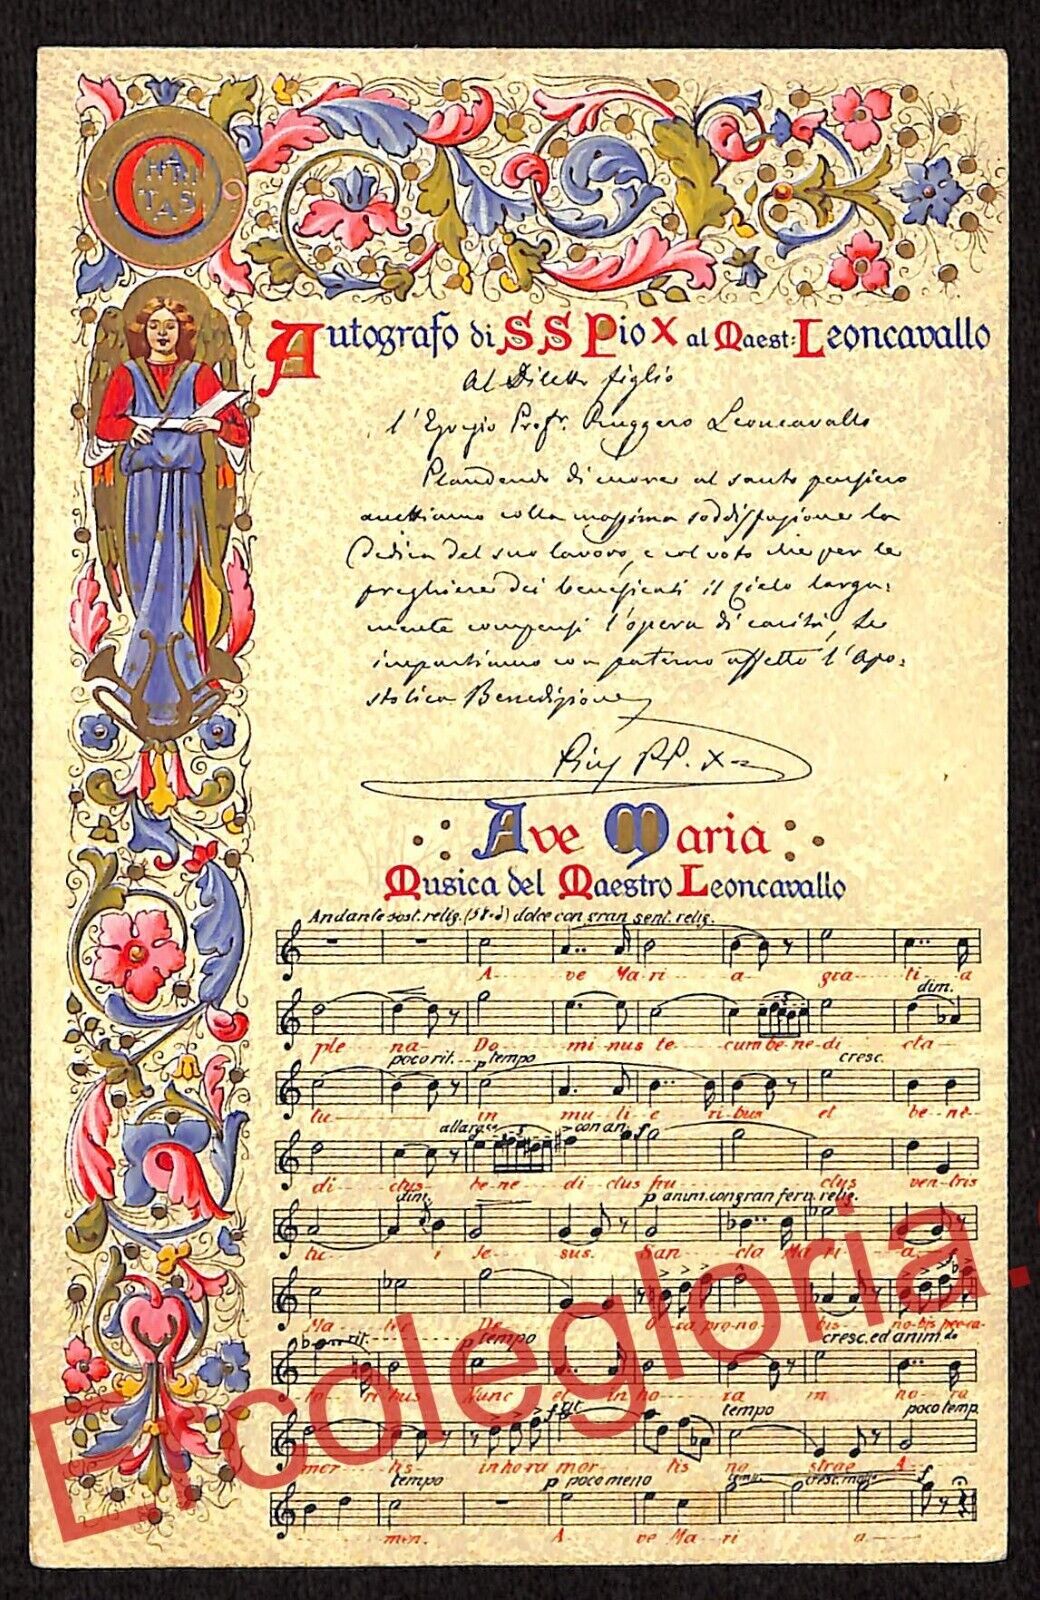 CHARITAS
Autografo di S S Pio X al Maest: Leoncavallo
Al Diletto figlio
l'Egregio Profr. Ruggero Leoncavallo
Plaudendo di cuore al santo pensiero
accettiamo colla massima soddisfazione la
Dedica del suo lavoro, e col voto che per le
preghiere dei beneficati il Cielo larga:
mente compensi l'opera di carità, Le
impartiamo con paterno affetto l'Apo:
stolica Benedizione
Pius PP. X
Ave Maria
Musica del Maestro Leoncavallo
Andante sost. relig. dolce con gran sent. relig.
A- ve Ma-ri- a gra-ti-a
dim.
ple- na- Do- mi-nus te- cum be-ne-di- cta-
poco rit. p tempo cresc.
tu- in mu-li-e ri-bus et be-ne-
allarg. con an. f
di- ctus- be-ne- di-ctus fru- ctus ven-tris
dim. p anim. con gran ferv. relig.
tu- i Je- sus. San- cta Ma-ri- a- f
Ma- ter De- i O-ra pro-no- bis no-bis pec-ca-
rit. p tempo cresc. ed anim.do
to-ri-bus Nunc et in ho- ra in ho-ra
f rit. tempo poco temp.
mor- tis- in ho-ra mor- tis no- strae A-
tempo p poco meno cresc. f
men. A ve Ma-ri a-
Ercolegloria.